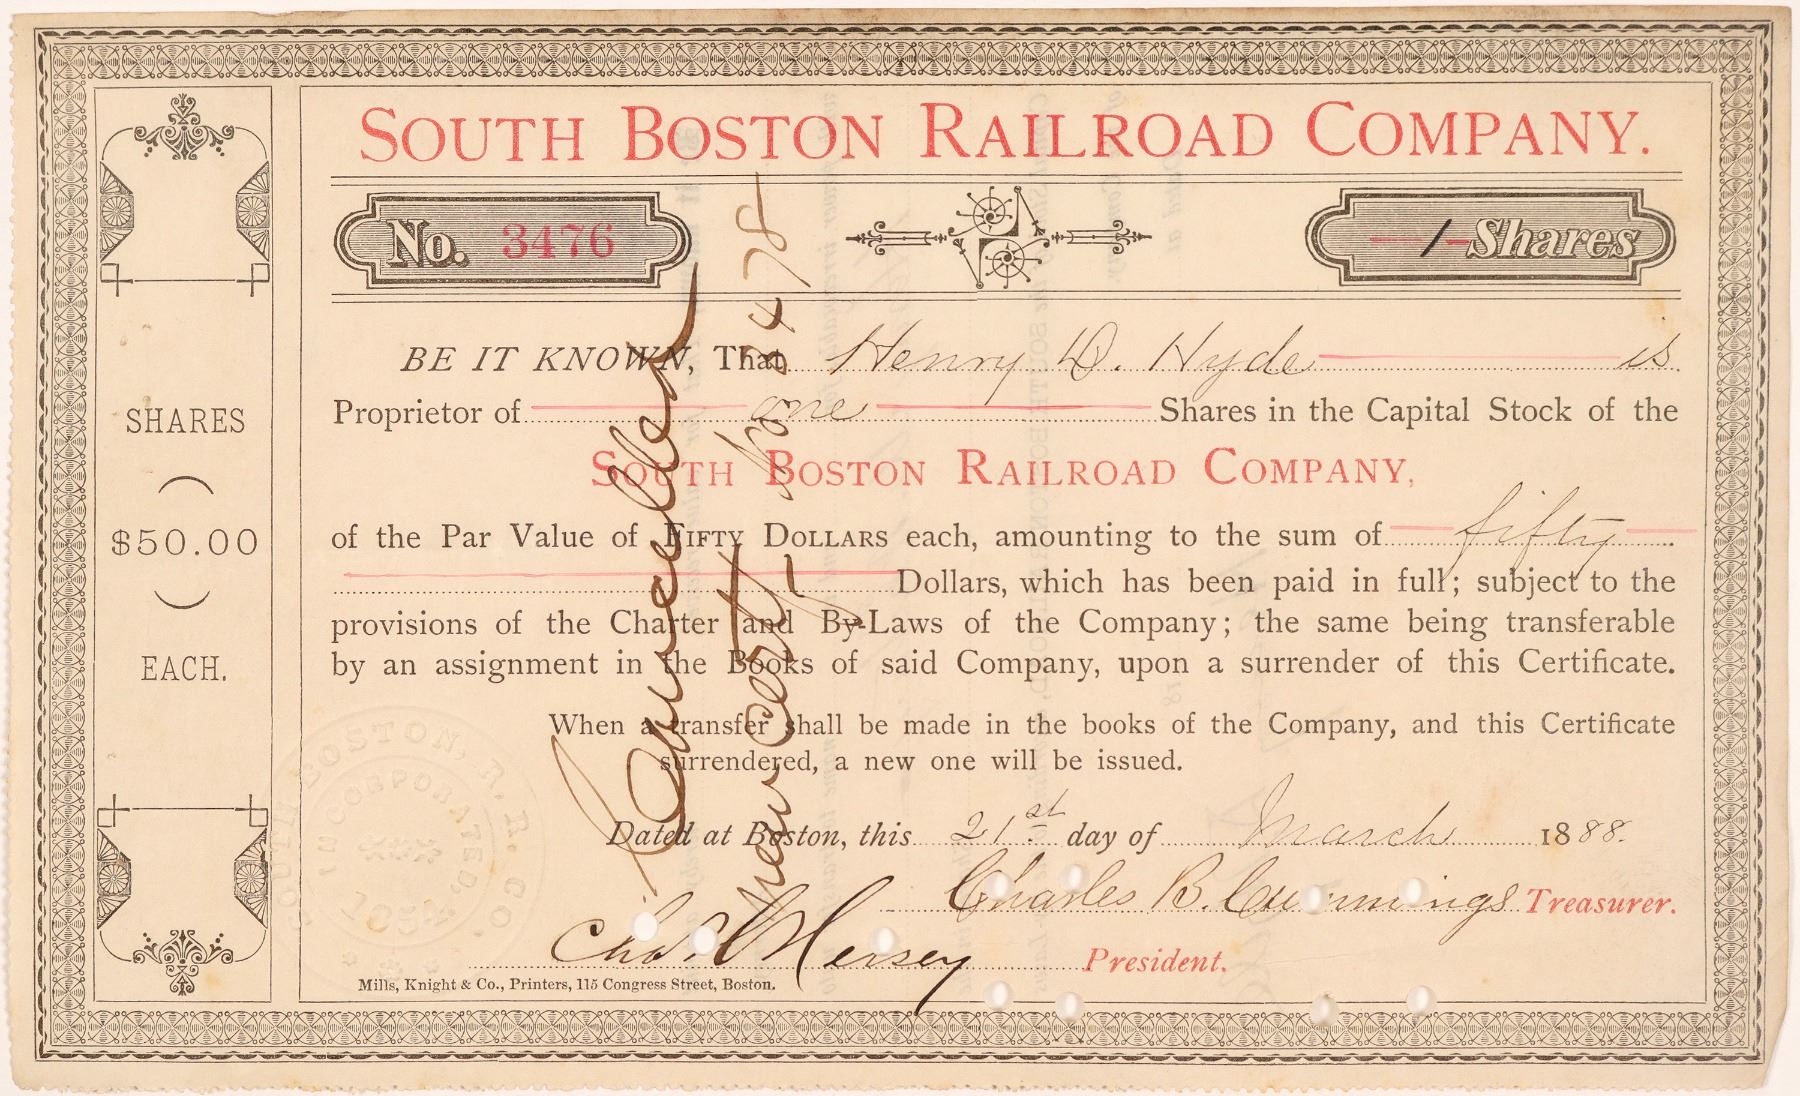 SOUTH BOSTON RAILROAD COMPANY.
No. 3476
1 Shares
BE IT KNOWN, That Henry D. Hyde is
Proprietor of one Shares in the Capital Stock of the
SOUTH BOSTON RAILROAD COMPANY,
of the Par Value of FIFTY DOLLARS each, amounting to the sum of fifty
Dollars, which has been paid in full; subject to the
provisions of the Charter and By-Laws of the Company; the same being transferable
by an assignment in the Books of said Company, upon a surrender of this Certificate.
When a transfer shall be made in the books of the Company, and this Certificate
surrendered, a new one will be issued.
Dated at Boston, this 21st day of March 1888.
Charles B. Cummings Treasurer.
Chas. Hersey
President.
Mills, Knight & Co., Printers, 115 Congress Street, Boston.
SHARES
$50.00
EACH.
Cancelled
New Certf. No 3478
SOUTH BOSTON, R. R. CO.
INCORPORATED,
1854.